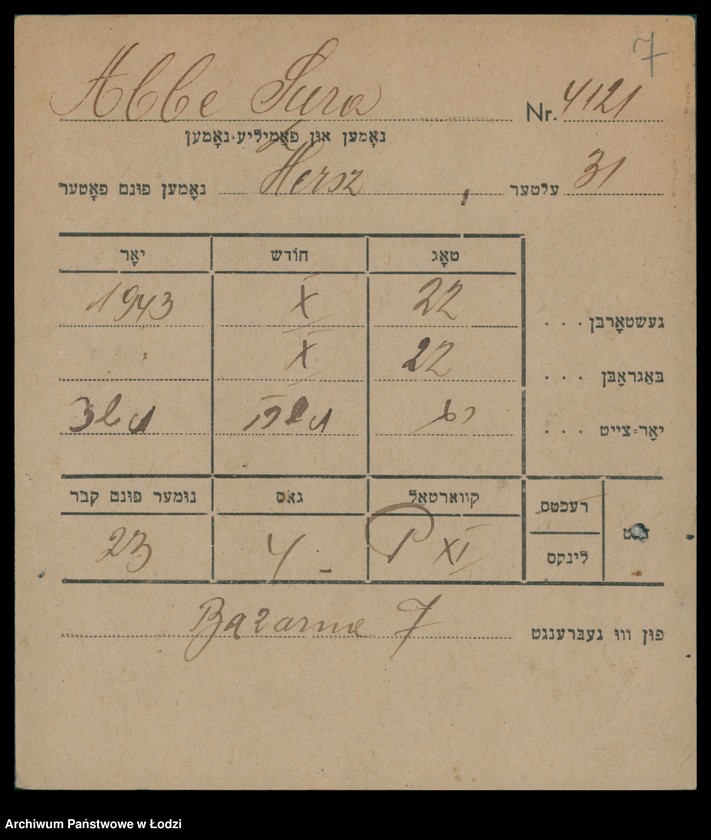 7
Abbe Sura Nr. 4121
נאָמען און פאַמיליע-נאָמען
נאָמען פונם פאָטער Hersz, עלטער 31
טאָג חודש יאָר
געשטאָרבן . . . 22 X 1943
באַגראָבן . . . 22 X "
יאָר-צייט . . .
רעכטס קוואַרטאַל גאַס נומער פונם קבר
לינקס P XI 4 - 23
פון וווּ געברענגט Bazarna 7
Archiwum Państwowe w Łodzi